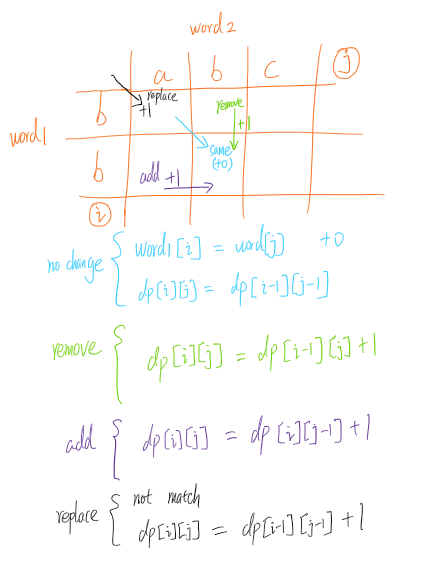 word2
a b c j
b replace +1 remove +1
word1
same (+0)
b add +1
i
no change { word1[i] = word[j] +0
dp[i][j] = dp[i-1][j-1]
remove { dp[i][j] = dp[i-1][j]+1
add { dp[i][j] = dp[i][j-1]+1
replace { not match
dp[i][j] = dp[i-1][j-1]+1